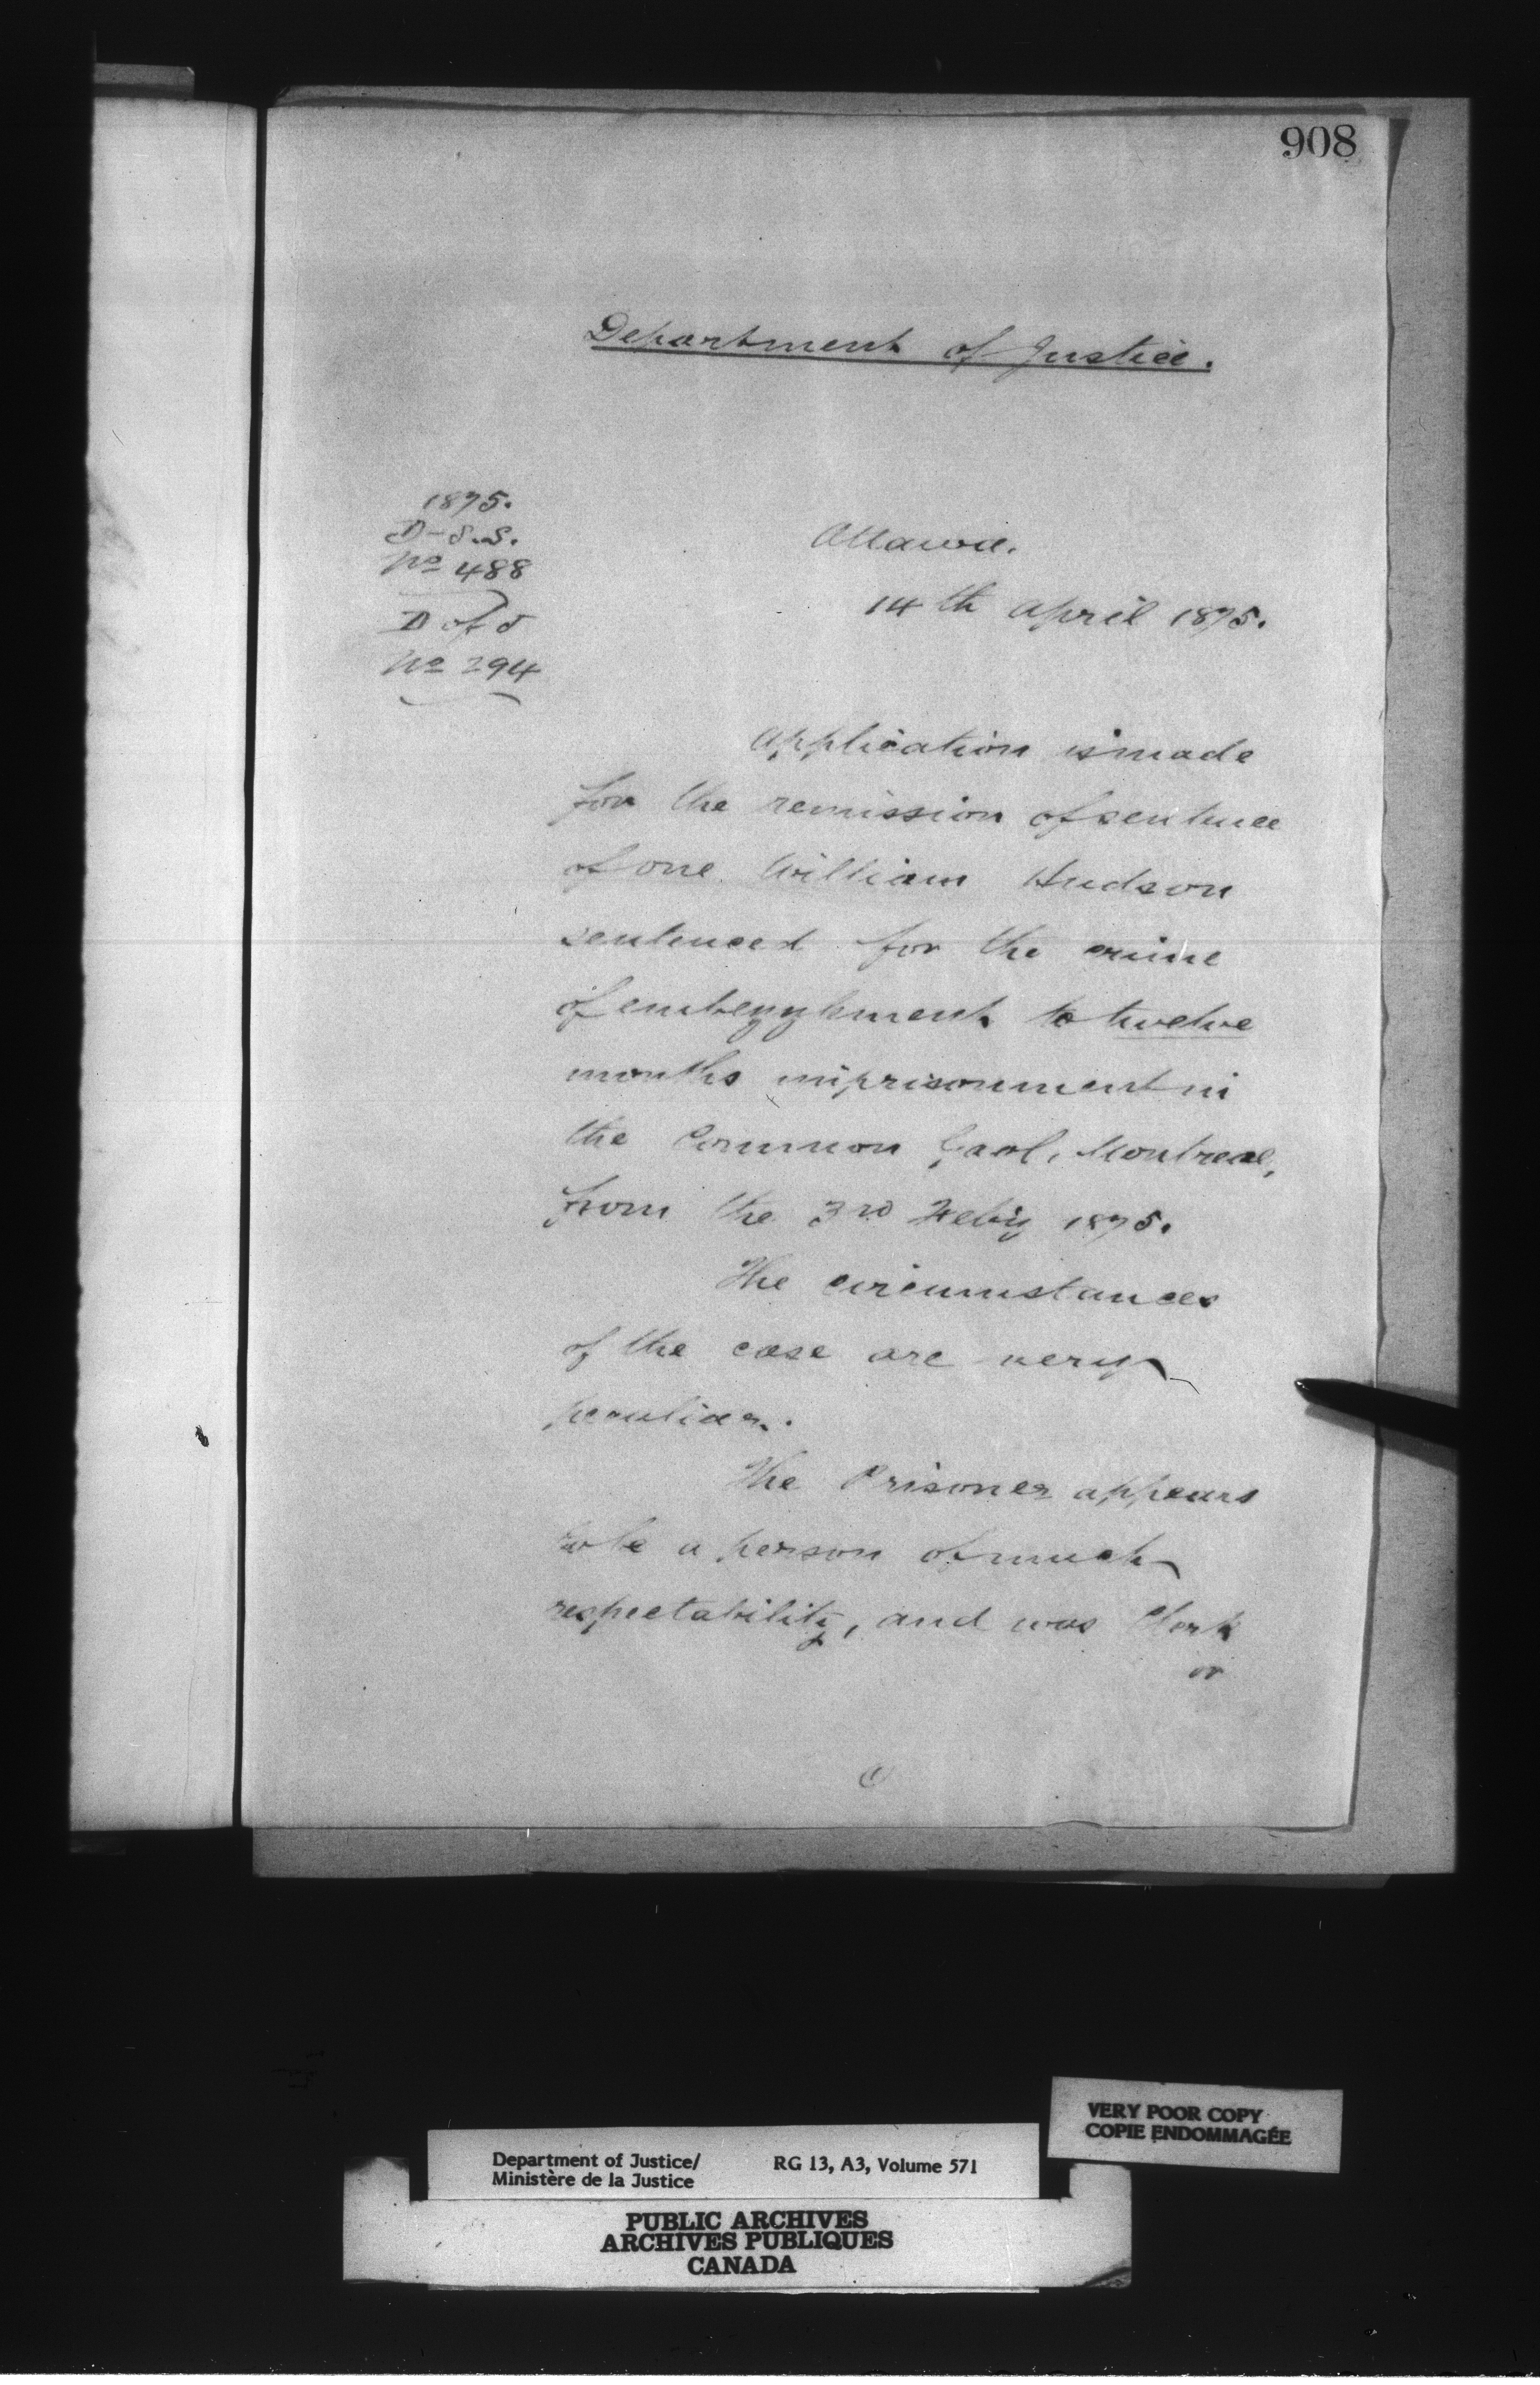 908
Department of Justice.
1875.
D-S.S.
No 488
D of J
No 294
Ottawa.
14th April 1875.
Application is made
for the remission of sentence
of one William Hudson
sentenced for the crime
of embezzlement to twelve
months imprisonment in
the Common Gaol, Montreal,
from the 3rd Feby 1875.
The circumstances
of the case are very
peculiar.
The Prisoner appears
to be a person of much
respectability, and was Clerk
or
Department of Justice/
Ministère de la Justice
RG 13, A3, Volume 571
VERY POOR COPY
COPIE ENDOMMAGÉE
PUBLIC ARCHIVES
ARCHIVES PUBLIQUES
CANADA